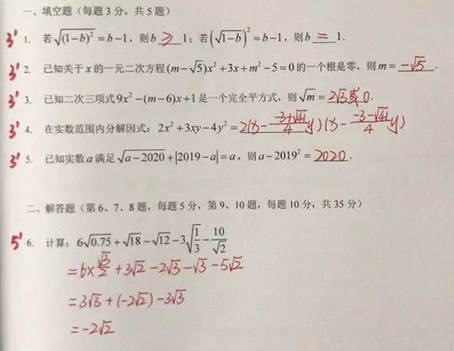 一、填空题（每题 3 分，共 5 题）
3' 1. 若√((1-b)²) = b-1，则b ≥ 1；若(√(1-b))² = b-1，则b = 1.
3' 2. 已知关于x的一元二次方程(m-√5)x²+3x+m²-5=0的一个根是零，则m= -√5 .
3' 3. 已知二次三项式9x²-(m-6)x+1是一个完全平方式，则√m = 2√3或0.
3' 4. 在实数范围内分解因式：2x²+3xy-4y²= 2(x- (-3+√41)/4 y)(x- (-3-√41)/4 y)
3' 5. 已知实数a满足√(a-2020)+|2019-a|=a，则a-2019²= 2020 .
二、解答题（第 6、7、8 题，每题 5 分，第 9、10 题，每题 10 分，共 35 分）
5' 6. 计算：6√0.75+√18-√12-3√(1/3)-10/√2
=6×√3/2+3√2-2√3-√3-5√2
=3√3+(-2√2)-3√3
=-2√2